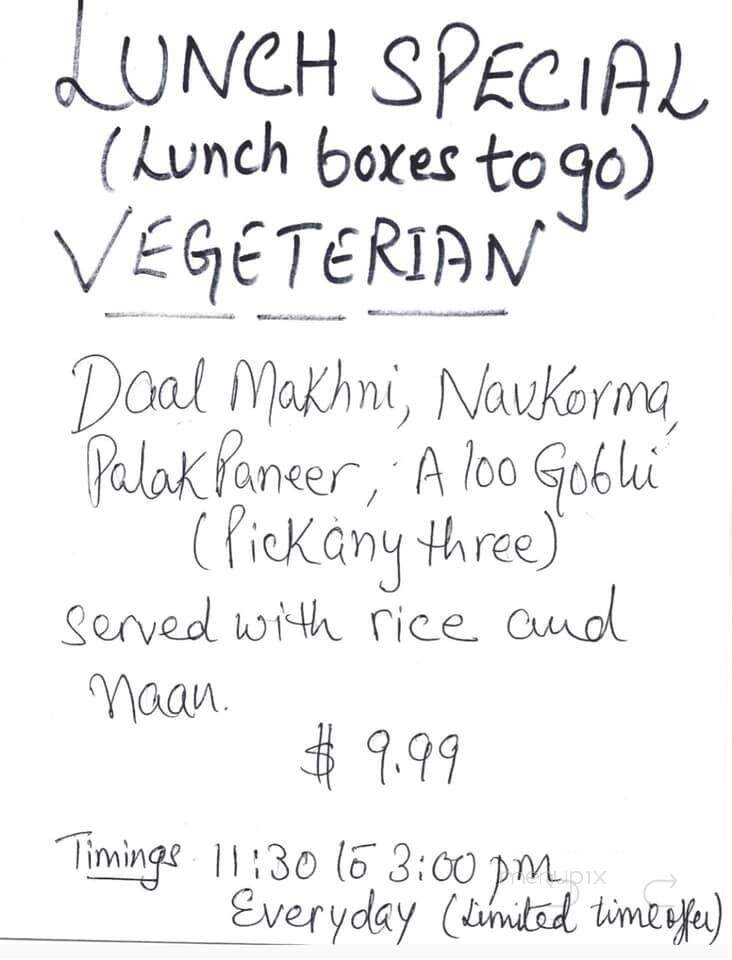 LUNCH SPECIAL
(Lunch boxes to go)
VEGETERIAN
Daal Makhni, NavKorma,
Palak Paneer, Aloo Gobhi
(Pick any three)
served with rice and
Naan.
$ 9.99
Timings 11:30 to 3:00 pm
menupix
Everyday (Limited time offer)